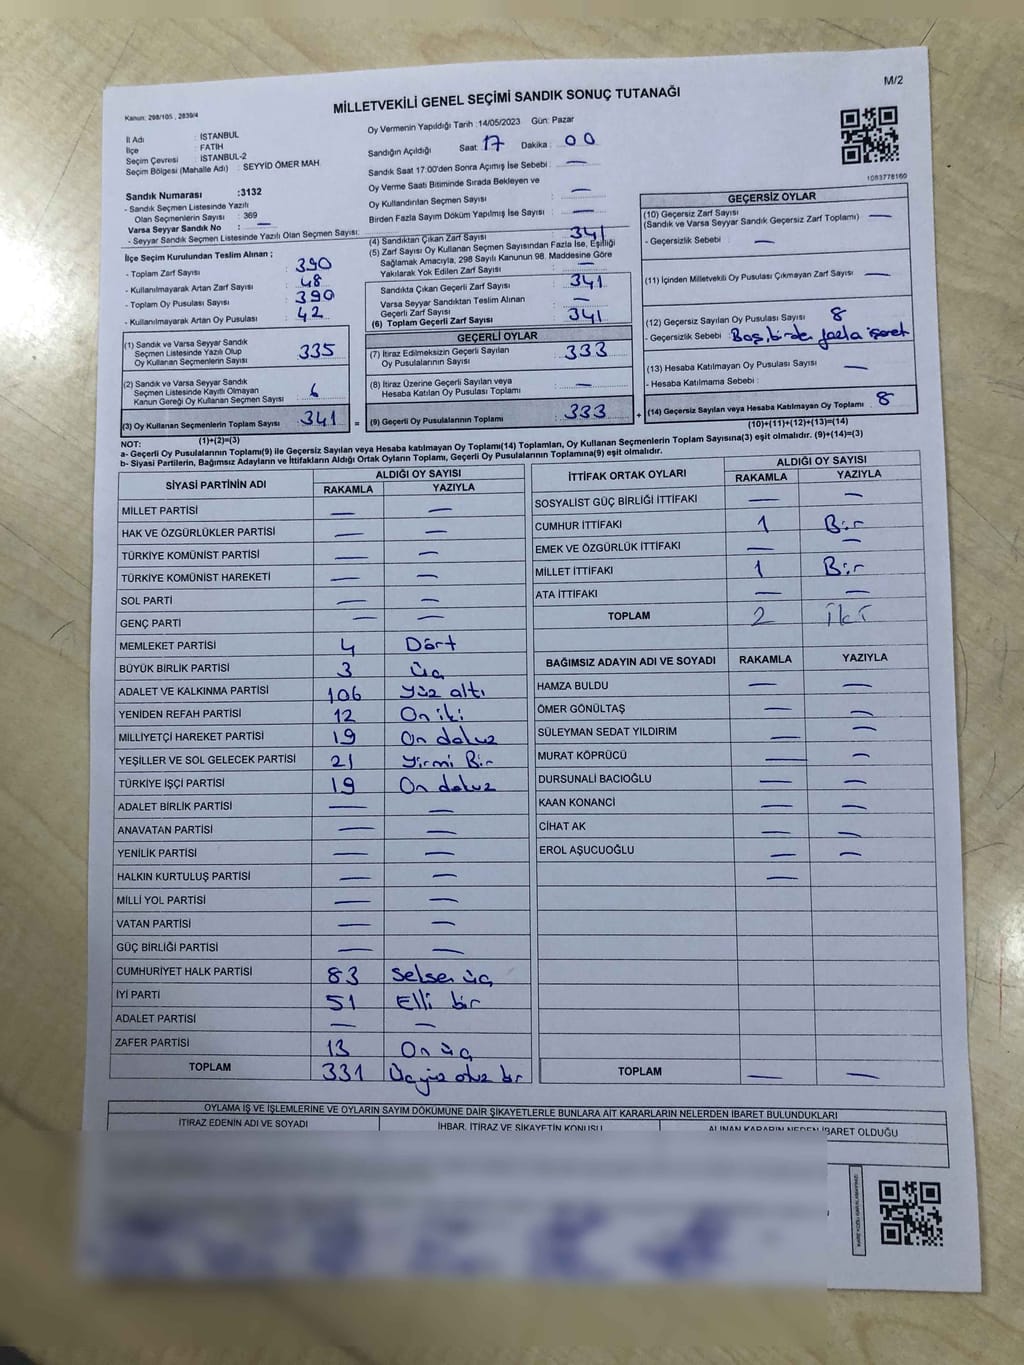 M/2
MİLLETVEKİLİ GENEL SEÇİMİ SANDIK SONUÇ TUTANAĞI
Kanun: 298/105 , 2839/4
İl Adı : İSTANBUL
İlçe : FATİH
Seçim Çevresi : İSTANBUL-2
Seçim Bölgesi (Mahalle Adı) : SEYYİD ÖMER MAH.
Sandık Numarası :3132
- Sandık Seçmen Listesinde Yazılı
Olan Seçmenlerin Sayısı : 369
Varsa Seyyar Sandık No : —
- Seyyar Sandık Seçmen Listesinde Yazılı Olan Seçmen Sayısı:
Oy Vermenin Yapıldığı Tarih :14/05/2023 Gün: Pazar
Sandığın Açıldığı Saat 17 Dakika : 00
Sandık Saat 17:00'den Sonra Açılmış İse Sebebi : —
Oy Verme Saati Bitiminde Sırada Bekleyen ve
Oy Kullandırılan Seçmen Sayısı : —
Birden Fazla Sayım Döküm Yapılmış İse Sayısı : —
1083778160
İlçe Seçim Kurulundan Teslim Alınan ;
- Toplam Zarf Sayısı : 390
- Kullanılmayarak Artan Zarf Sayısı : 48
- Toplam Oy Pusulası Sayısı : 390
- Kullanılmayarak Artan Oy Pusulası : 42
(1) Sandık ve Varsa Seyyar Sandık
Seçmen Listesinde Yazılı Olup
Oy Kullanan Seçmenlerin Sayısı : 335
(2) Sandık ve Varsa Seyyar Sandık
Seçmen Listesinde Kayıtlı Olmayan
Kanun Gereği Oy Kullanan Seçmen Sayısı : 6
(3) Oy Kullanan Seçmenlerin Toplam Sayısı : 341
(1)+(2)=(3)
(4) Sandıktan Çıkan Zarf Sayısı : 341
(5) Zarf Sayısı Oy Kullanan Seçmen Sayısından Fazla İse, Eşitliği
Sağlamak Amacıyla, 298 Sayılı Kanunun 98. Maddesine Göre
Yakılarak Yok Edilen Zarf Sayısı : —
Sandıkta Çıkan Geçerli Zarf Sayısı : 341
Varsa Seyyar Sandıktan Teslim Alınan
Geçerli Zarf Sayısı : —
(6) Toplam Geçerli Zarf Sayısı : 341
GEÇERLİ OYLAR
(7) İtiraz Edilmeksizin Geçerli Sayılan
Oy Pusulalarının Sayısı : 333
(8) İtiraz Üzerine Geçerli Sayılan veya
Hesaba Katılan Oy Pusulası Toplamı : —
= (9) Geçerli Oy Pusulalarının Toplamı : 333
GEÇERSİZ OYLAR
(10) Geçersiz Zarf Sayısı : —
(Sandık ve Varsa Seyyar Sandık Geçersiz Zarf Toplamı)
- Geçersizlik Sebebi : —
(11) İçinden Milletvekili Oy Pusulası Çıkmayan Zarf Sayısı : —
(12) Geçersiz Sayılan Oy Pusulası Sayısı : 8
- Geçersizlik Sebebi : Boş, birden fazla işaret
(13) Hesaba Katılmayan Oy Pusulası Sayısı : —
- Hesaba Katılmama Sebebi :
+ (14) Geçersiz Sayılan veya Hesaba Katılmayan Oy Toplamı : 8
(10)+(11)+(12)+(13)=(14)
NOT:
a- Geçerli Oy Pusulalarının Toplamı(9) ile Geçersiz Sayılan veya Hesaba katılmayan Oy Toplamı(14) Toplamları, Oy Kullanan Seçmenlerin Toplam Sayısına(3) eşit olmalıdır. (9)+(14)=(3)
b- Siyasi Partilerin, Bağımsız Adayların ve İttifakların Aldığı Ortak Oyların Toplamı, Geçerli Oy Pusulalarının Toplamına(9) eşit olmalıdır.
SİYASİ PARTİNİN ADI ALDIĞI OY SAYISI
RAKAMLA YAZIYLA
MİLLET PARTİSİ — —
HAK VE ÖZGÜRLÜKLER PARTİSİ — —
TÜRKİYE KOMÜNİST PARTİSİ — —
TÜRKİYE KOMÜNİST HAREKETİ — —
SOL PARTİ — —
GENÇ PARTİ — —
MEMLEKET PARTİSİ 4 Dört
BÜYÜK BİRLİK PARTİSİ 3 Üç
ADALET VE KALKINMA PARTİSİ 106 Yüz altı
YENİDEN REFAH PARTİSİ 12 On iki
MİLLİYETÇİ HAREKET PARTİSİ 19 On dokuz
YEŞİLLER VE SOL GELECEK PARTİSİ 21 Yirmi Bir
TÜRKİYE İŞÇİ PARTİSİ 19 On dokuz
ADALET BİRLİK PARTİSİ — —
ANAVATAN PARTİSİ — —
YENİLİK PARTİSİ — —
HALKIN KURTULUŞ PARTİSİ — —
MİLLİ YOL PARTİSİ — —
VATAN PARTİSİ — —
GÜÇ BİRLİĞİ PARTİSİ — —
CUMHURİYET HALK PARTİSİ 83 Seksen üç
İYİ PARTİ 51 Elli bir
ADALET PARTİSİ — —
ZAFER PARTİSİ 13 On üç
TOPLAM 331 Üçyüz otuz bir
İTTİFAK ORTAK OYLARI ALDIĞI OY SAYISI
RAKAMLA YAZIYLA
SOSYALİST GÜÇ BİRLİĞİ İTTİFAKI — —
CUMHUR İTTİFAKI 1 Bir
EMEK VE ÖZGÜRLÜK İTTİFAKI — —
MİLLET İTTİFAKI 1 Bir
ATA İTTİFAKI — —
TOPLAM 2 İki
BAĞIMSIZ ADAYIN ADI VE SOYADI RAKAMLA YAZIYLA
HAMZA BULDU — —
ÖMER GÖNÜLTAŞ — —
SÜLEYMAN SEDAT YILDIRIM — —
MURAT KÖPRÜCÜ — —
DURSUNALİ BACIOĞLU — —
KAAN KONANCİ — —
CİHAT AK — —
EROL AŞUCUOĞLU — —
—
TOPLAM — —
OYLAMA İŞ VE İŞLEMLERİNE VE OYLARIN SAYIM DÖKÜMÜNE DAİR ŞİKAYETLERLE BUNLARA AİT KARARLARIN NELERDEN İBARET BULUNDUKLARI
İTİRAZ EDENİN ADI VE SOYADI İHBAR, İTİRAZ VE ŞİKAYETİN KONUSU ALINAN KARARIN NEDEN İBARET OLDUĞU